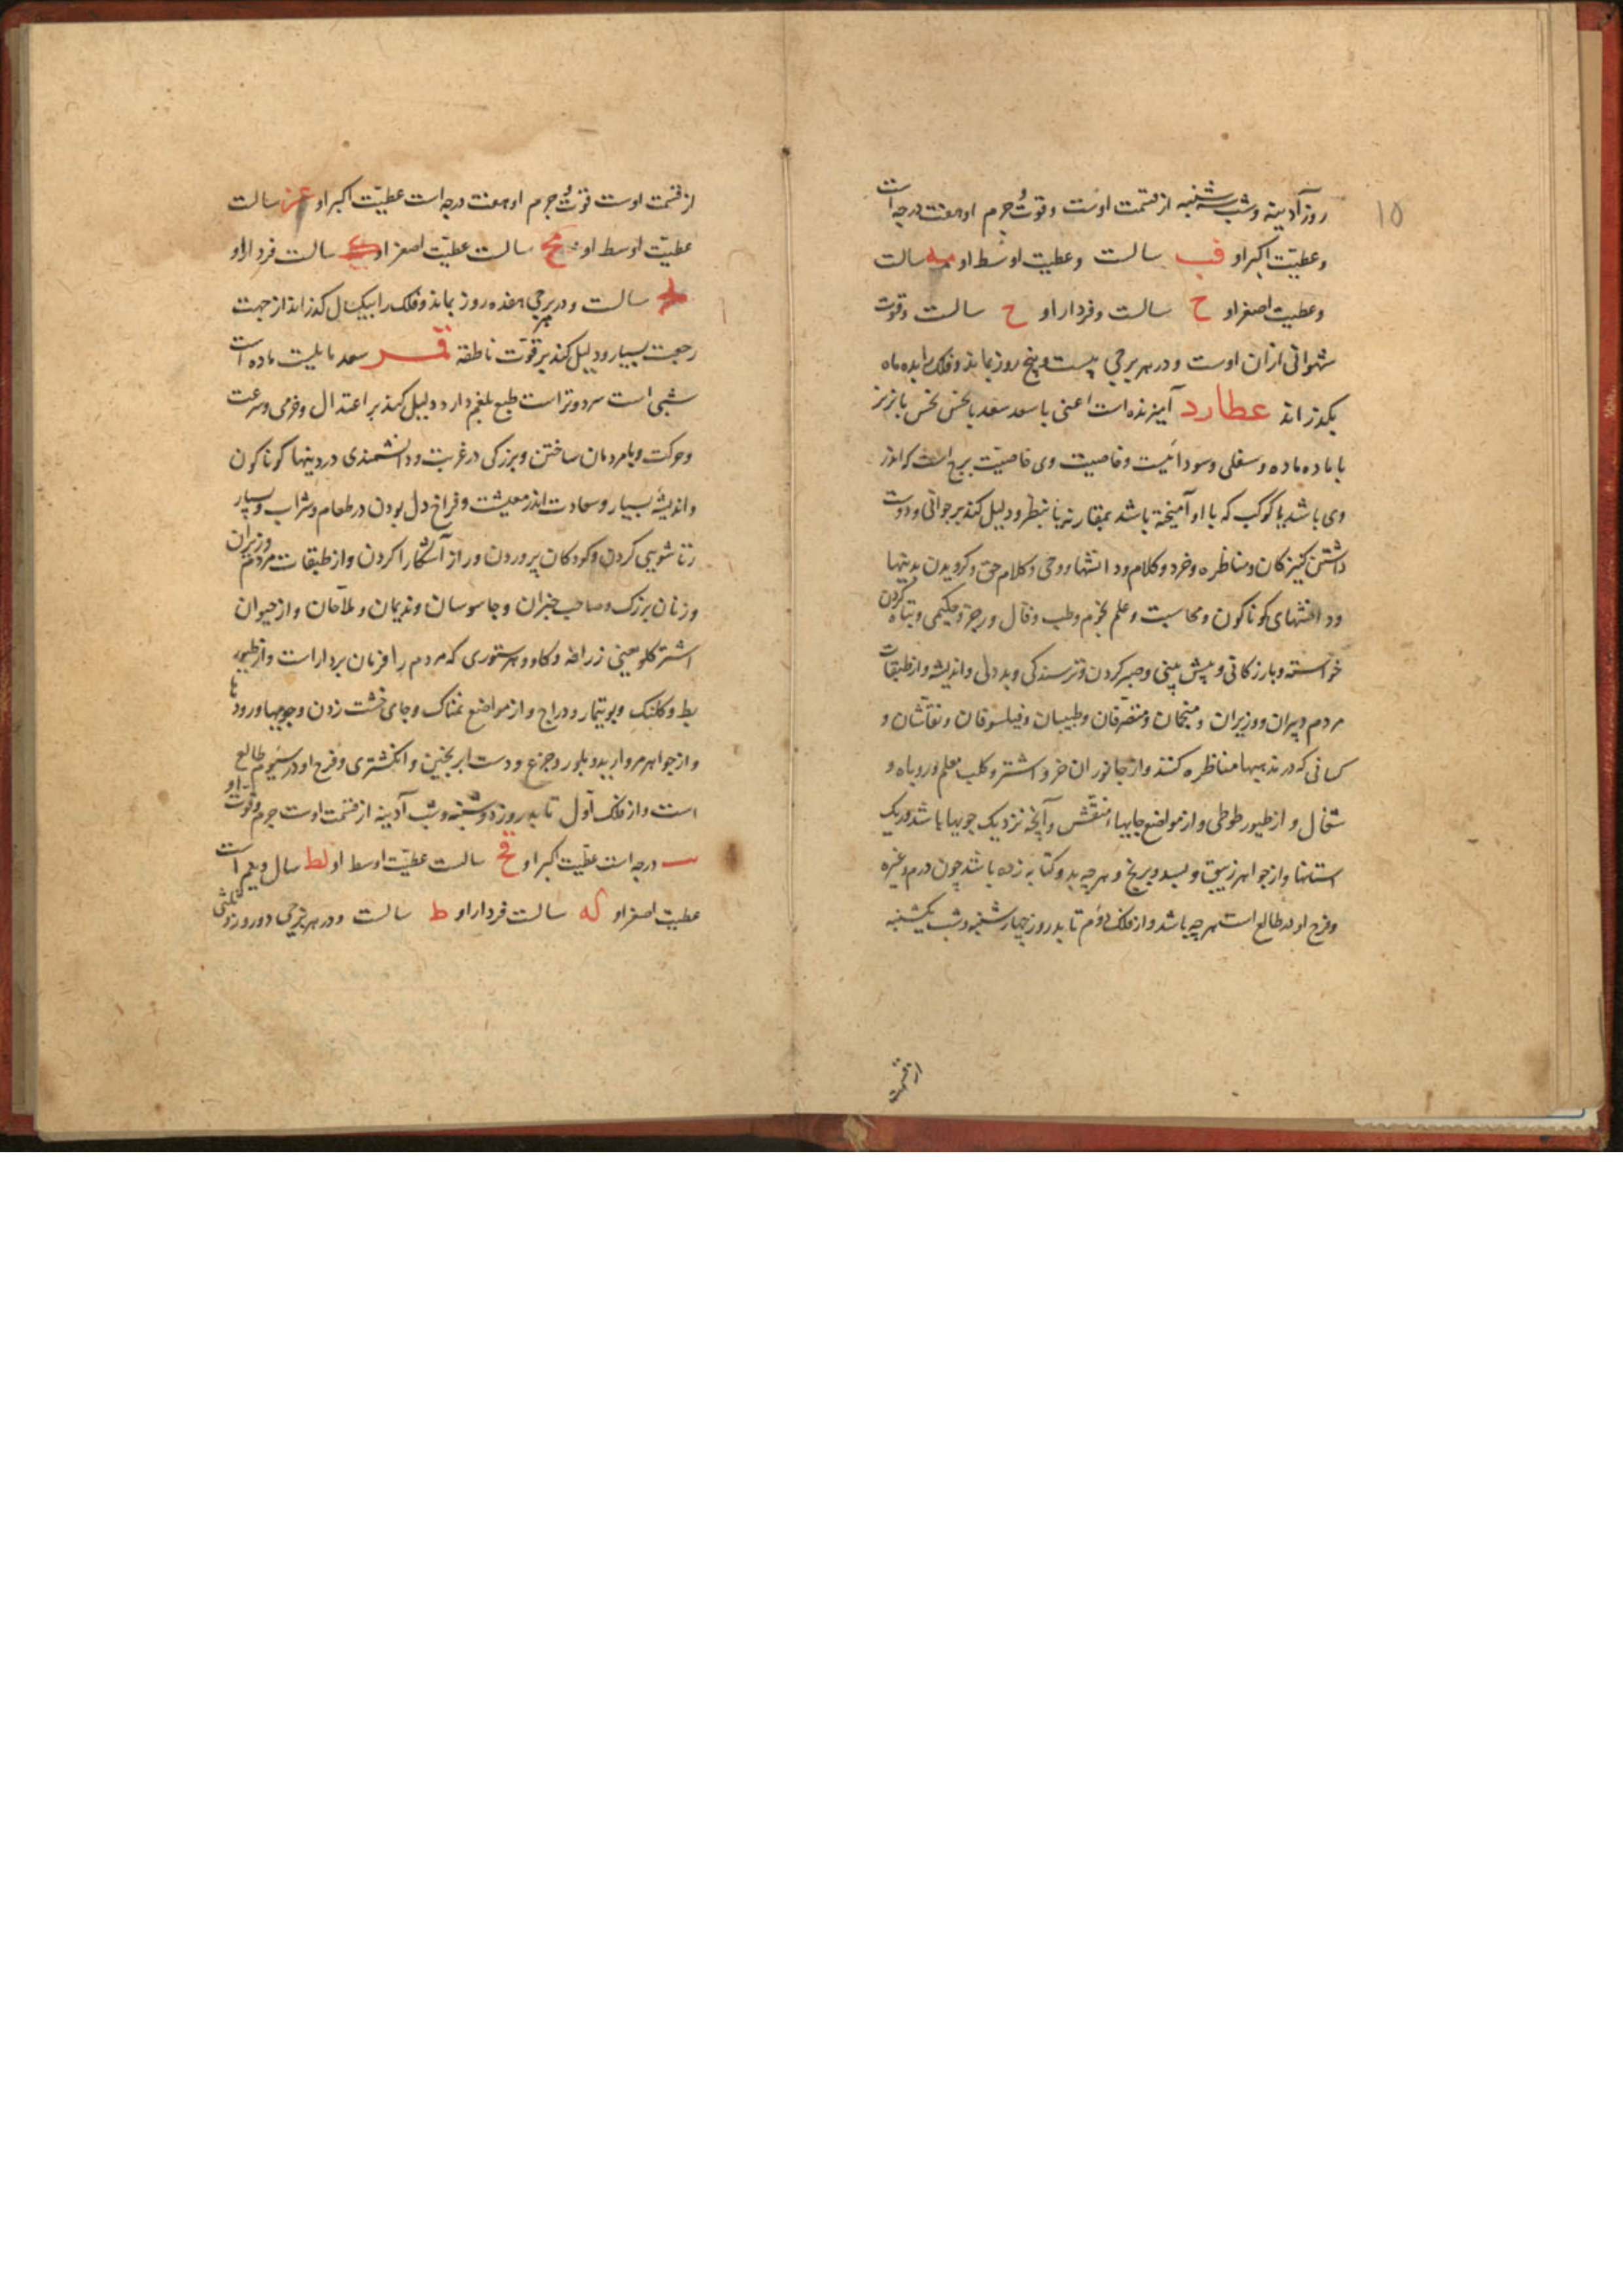 ۱۵
روز آدینه و شب سه شنبه از قسمت اوست و قوت جرم او هفت درجه است
و عطیّت اکبر او فب سالست و عطیت اوسط او مه سالست
و عطیت اصغر او ح سالست و فردار او ح سالست و قوت
شهوانی ازان اوست و در هر برجی بیست و پنج روز بماند و فلک را بده ماه
بگذراند عطارد آمیزنده است اعنی با سعد سعد با نحس نحس با نر نر
با ماده ماده و سفلی و سودائیست و خاصیت وی خاصیّت برج است که اندر
وی باشد یا کوکب که با او آمیخته باشد بمقارنه یا بنظر و دلیل کند بر جوانی و دوست
داشتن کنیزکان و مناظره و خرد و کلام و دانشها و وحی و کلام حق و کرویدن بدینها
و دانشهای کوناکون و محاسبت و علم نجوم و طب و فال و زجر و حکیمی و تباه کردن
خواسته و بازرکانی و پیش بینی و صبر کردن و ترسندکی و بددلی و اندیشه و از طبقات
مردم دبیران و وزیران و منجمان و متصرّفان و طبیبان و فیلسوفان و نقاشان و
کسانی که در مذهبها مناظره کنند و از جانوران خر و اشتر و کلب معلم و روباه و
شغال و از طیور طوطی و از مواضع جایهاء منقّش و آنچه نزدیک جویها باشد و ریک
استانها و از جواهر زیبق و بسد و برنج و هر چه بدو کتابه زده باشد چون درم و غیره
و فرح او در طالع است هر چه باشد و از فلک دوّم تابد روز چهارشنبه و شب یکشنبه
از قسمت
از قسمت اوست قوّت جرم او هفت درجه است عطیّت اکبر او عز سالست
عطیّت اوسط او مح سالست عطیّت اصغر او سالست فردار او
سالست و در هر برجی هفده روز بماند و فلک را بیکسال کذراند از جهت
رجعت بسیار و دلیل کند بر قوّت ناطقه قمر سعد مایلست ماده است
شبی است سرد و تر است طبع بلغم دارد دلیل کند بر اعتدال و خرمی و سرعت
و حرکت و با مردمان ساختن و بزرکی در غربت و دانشمندی در دینها کوناکون
و اندیشهٔ بسیار و سعادت اندر معیشت و فراخ دل بودن در طعام و شراب و بسیار
زناشویی کردن و کودکان پروردن و راز آشکارا کردن و از طبقات مردم وزیران
و زنان بزرک و صاحب خبران و جاسوسان و ندیمان و ملاحان و از حیوان
اشتر کاو یعنی زرافه و کاو و هر ستوری که مردم را فرمان بردار است و از طیور
بط و کلنک و بوتیمار و دراج و از مواضع نمناک و جای خشت زدن و جویها و رودها
و از جواهر مروارید و بلور و جزع و دست ابرنجین و انکشتری و فرح او در سیوم طالع
است و از فلک اوّل تابد روز دوشنبه و شب آدینه از قسمت اوست جرم و قوت او
درجه است عطّیت اکبر او قح سالست عطیّت اوسط او لط سال و نیم است
عطیت اصغر او که سالست فردار او ط سالست و در هر برجی دو روز و ثلثی